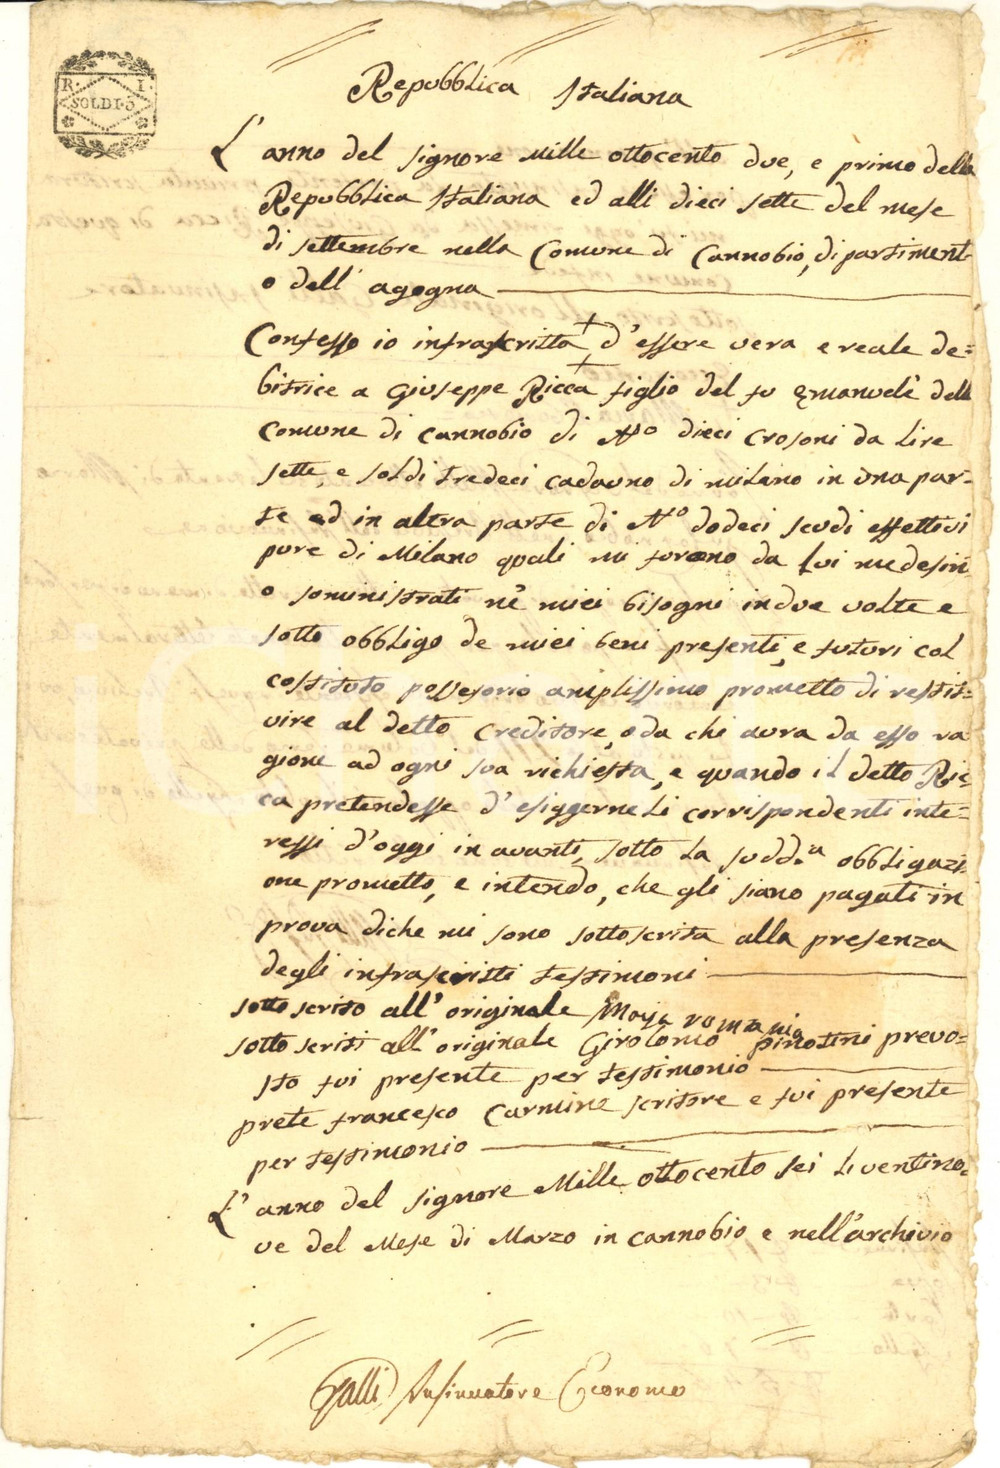 R. I.
SOLDI 5
Repubblica Italiana
L' anno del signore Mille ottocento due, e primo della
Repubblica Italiana ed alli dieci sette del mese
di settembre nella Comune di Cannobio, dipartiment
o dell' agogna
Confesso io infrascritta, d'essere vera e reale de=
bitrice a Giuseppe Ricca figlio del fu Emanuele della
Comune di Cannobio di N.o dieci crosoni da lire
sette, e soldi tredeci cadauno di milano in una par=
te ed in altra parte di N.o dodeci scudi effettivi
pure di Milano quali mi furono da lui medesim
o soministrati nè miei bisogni in due volte e
sotto obbligo de miei beni presenti, e futuri col
costituto possesorio amplissimo prometto di restit=
uire al detto creditore, o da chi avra da esso ra
gione ad ogni sua richiesta, e quando il detto Ric=
ca pretendesse d'esiggerne li corrispondenti inte=
ressi d'oggi in avanti, sotto la sudd.a obbligazi
one prometto, e intendo, che gli siano pagati in
prova di che mi sono sottoscritta alla presenza
degli infrascritti testimoni
sotto scrito all'originale romania
sotto scriti all'originale Girolamo pinotini prevo=
sto fui presente per testimonio
prete francesco Carmine scritore e fui presente
per testimonio
L' anno del signore Mille ottocento sei li ventino=
ve del Mese di Marzo in cannobio e nell'archivio
Galli Insinuatore Economo